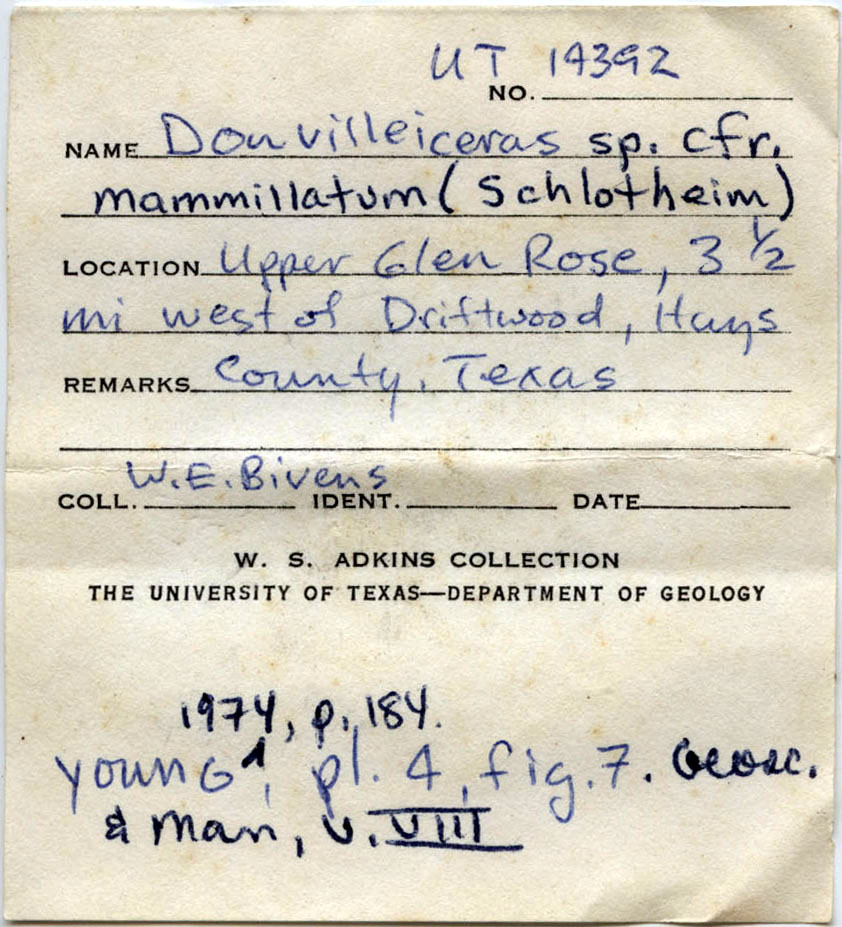 UT 14392
NO.
NAME Douvilleiceras sp. cfr.
mammillatum (Schlotheim)
LOCATION Upper Glen Rose, 3 ½
mi west of Driftwood, Hays
REMARKS County, Texas
W.E. Bivens
COLL. IDENT. DATE
W. S. ADKINS COLLECTION
THE UNIVERSITY OF TEXAS—DEPARTMENT OF GEOLOGY
1974, p. 184.
Young, pl. 4, fig. 7. Geosc.
& Man, v. VIII